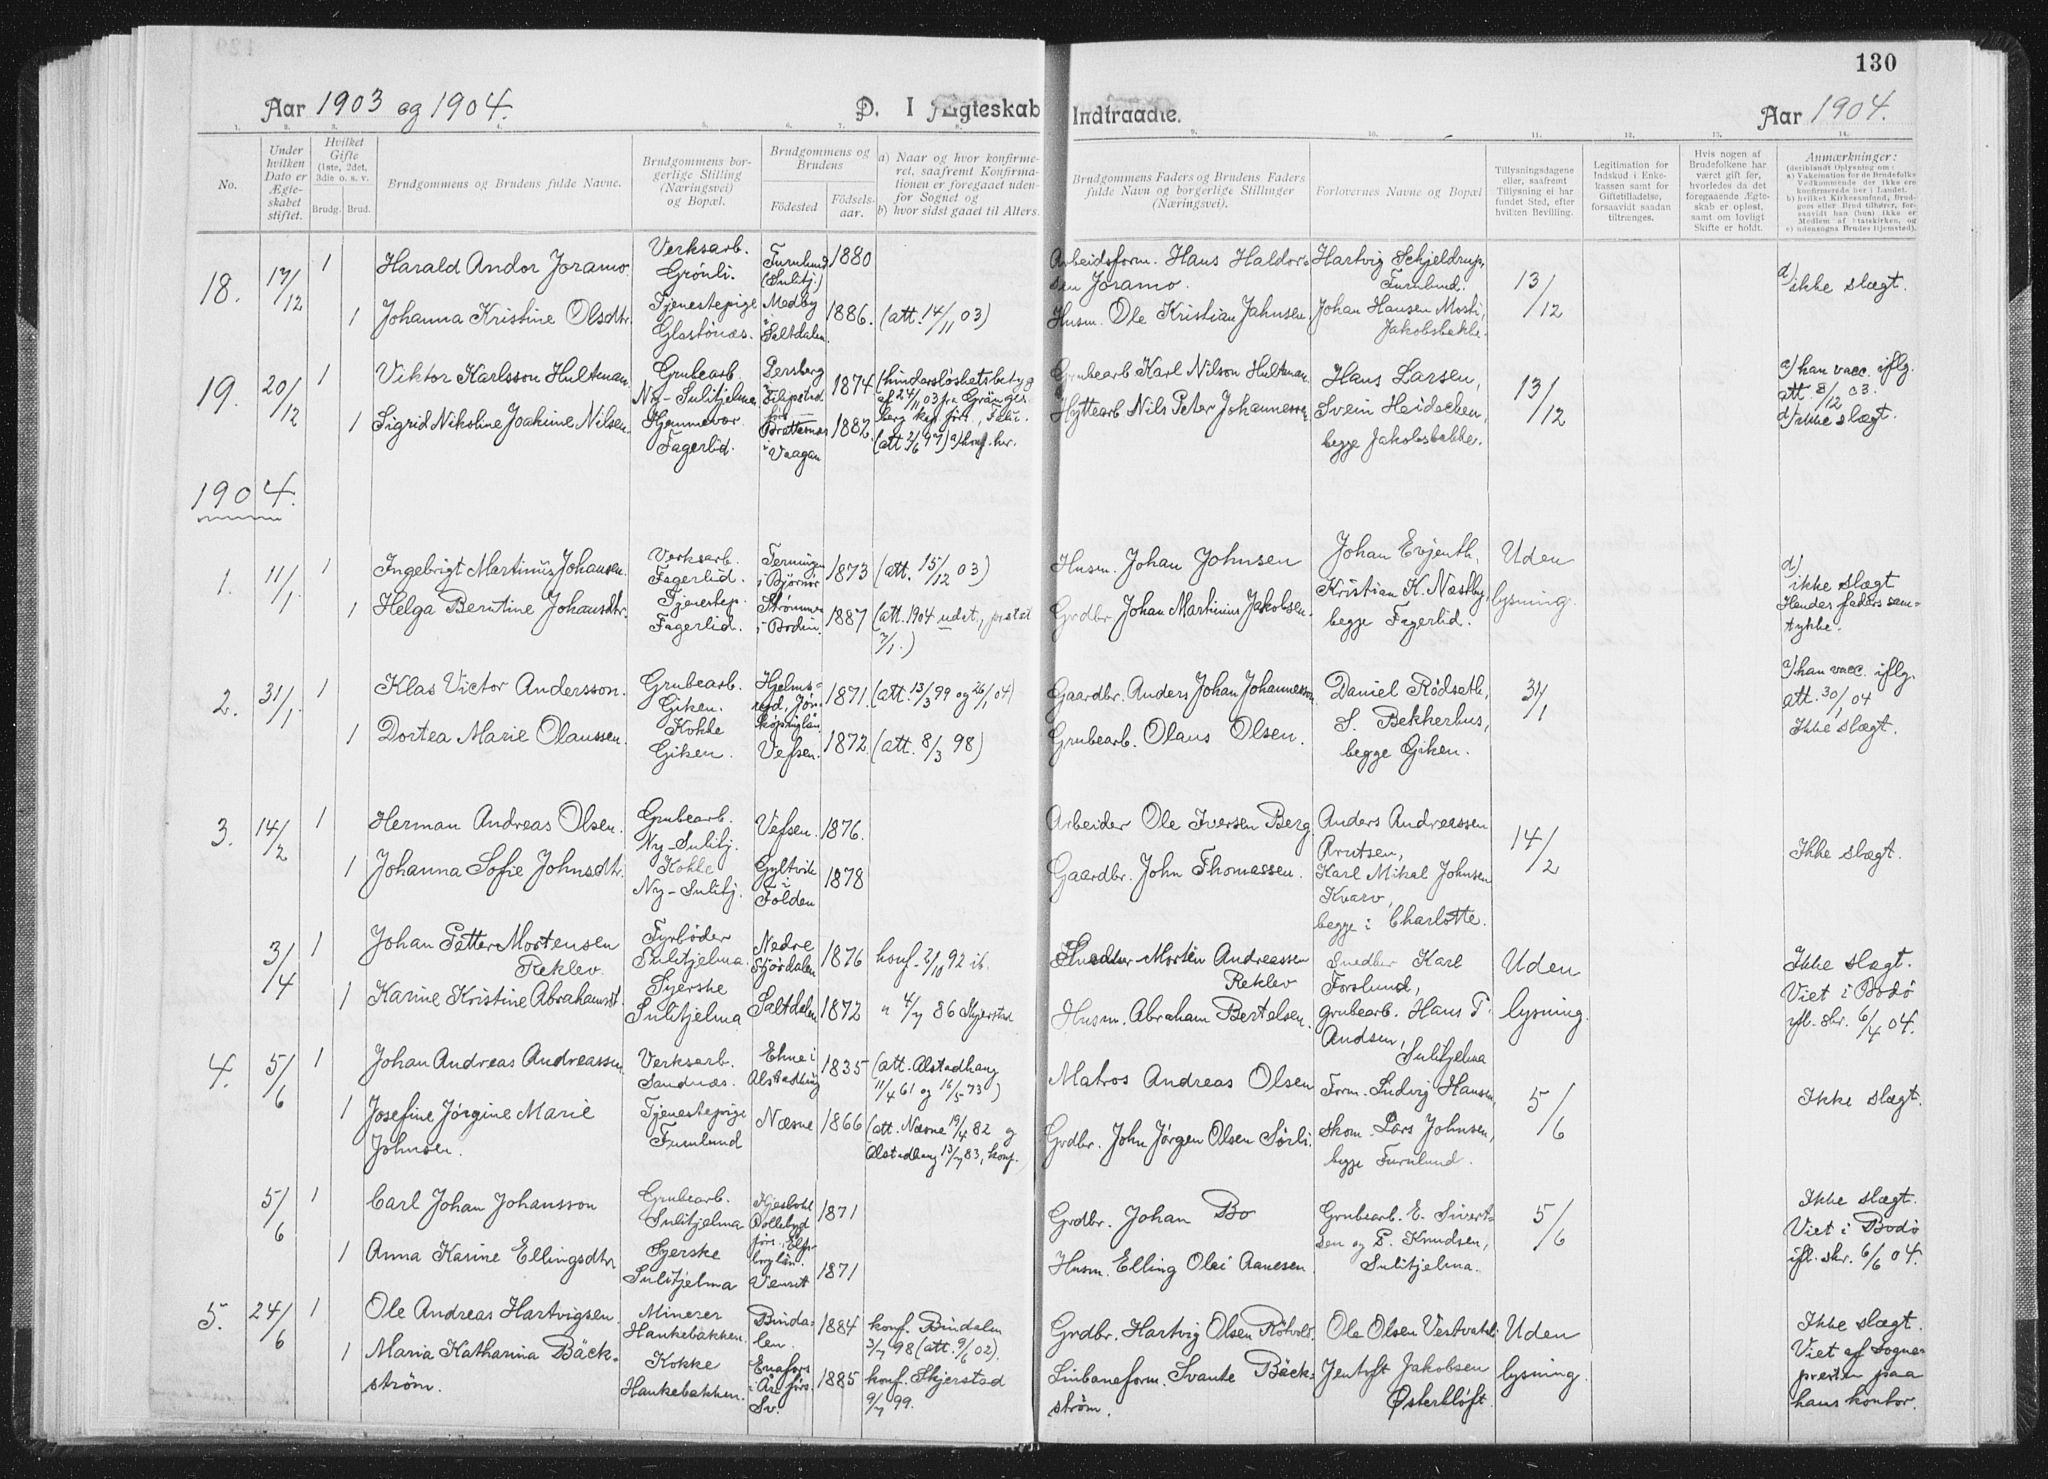 130
Aar 1903 og 1904.
D. I Ægteskab Indtraadte.
Aar 1904.
1. 2. 3. 4. 5. 6. 7. 8. 9. 10. 11. 12. 13. 14.
No.
Under hvilken Dato er Ægteskabet stiftet.
Hvilket Gifte (1ste, 2det, 3die o. s. v.
Brudg. Brud.
Brudgommens og Brudens fulde Navne.
Brudgommens borgerlige Stilling (Næringsvei) og Bopæl.
Brudgommens og Brudens
Födested
Födselsaar.
a) Naar og hvor konfirmeret, saafremt Konfirmationen er foregaaet udenfor Sognet og
b) hvor sidst gaaet til Alters.
Brudgommens Faders og Brudens Faders fulde Navn og borgerlige Stillinger (Næringsvei).
Forlovernes Navne og Bopæl
Tillysningsdagene eller, saafremt Tillysning ei har fundet Sted, efter hvilken Bevilling.
Legitimation for Indskud i Enkekassen samt for Giftetilladelse, forsaavidt saadan tiltrænges.
Hvis nogen af Brudefolkene har været gift för, hvorledes da det foregaaende Ægteskab er oplöst, samt om lovligt Skifte er holdt.
Anmærkninger:
(deriblandt Oplysning om:
a) Vakcination for de Brudefolks Vedkommende der ikke ere konfirmerede her i Landet.
b) hvilket Kirkesamfund, Brudgom eller Brud tilhører, forsaavidt han (hun) ikke er Medlem af Statskirken, og
c) udensogns Brudes Hjemsted).
18. 17/12 1 Harald Andor Joramo. Verksarb. Grönli. Furulund (Sulitj.) 1880
Arbeidsform. Hans Haldorsen Joramo. Hartvig Schjeldrup, Furulund. 13/12 d) ikke slægt.
1 Johanna Kristine Olsdtr. Tjenestepige Glastönæs. Medby i Saltdalen. 1886. (att. 14/11 03)
Husm. Ole Kristian Jahnsen. Johan Hansen Mosti, Jakobsbakke.
19. 20/12 1 Viktor Karlsson Hultman Grubearb. Ny-Sulitjelma Persberg 1874 (hinderslöshetsbetyg af 24/11 03 fra
Grubearb Karl Nilson Hultman Hans Larsen, 13/12 a) han vacc. iflg. att 8/12 03.
1 Sigrid Nikoline Joakime Nilsen. Hjemmevær. Fagerlid. Brettesnæs i Vaagan 1882 (att 2/6 97) a) konf. her.
Hyttearb Nils Peter Johannessen Svein Heidecken, begge Jakobsbakke. d) ikke slægt.
1904.
1. 11/1 1 Ingebrigt Martinus Johansen. Verksarb. Fagerlid. Terningen i Björnör 1873 (att. 15/12 03)
Husm. Johan Johnsen Johan Evjenth, Uden lysning. d) ikke slægt
1 Helga Berntine Johansdtr. Tjenestep. Fagerlid. Strömmen i Bodin. 1887 (att. 1904 udst., 7/1.)
Grdbr Johan Martinius Jakobsen. Kristian K. Næstby, begge Fagerlid. Hendes faders samtykke.
2. 31/1 1 Klas Victor Andersson. Grubearb. Giken. Hjelmseryd, Jönköpinglän. 1871 (att. 13/3 99 og 26/1 04)
Gaardbr. Anders Johan Johannesson Daniel Rödseth, 31/1 a) han vacc. iflg. att. 30/1 04
1 Dortea Marie Olaussen. Kokke Giken. Vefsen. 1872 (att. 8/3 98)
Grubearb. Olaus Olsen. S. Bekkerhus, begge Giken. Ikke slægt.
3. 14/2 1 Herman Andreas Olsen. Grubearb. Ny-Sulitj. Vefsen. 1876.
Arbeider Ole Iversen Berg Anders Andreassen 14/2 Ikke slægt.
1 Johanna Sofie Johnsdtr. Kokke Ny-Sulitj. Gyltvik i Folden 1878
Gaardbr. John Thomassen. Karl Mikal Johnsen Kvarv, begge i Charlotte.
3/4 1 Johan Petter Mortensen Reklev. Fyrböder Sulitjelma. Nedre Stjördalen 1876 konf. 2/10 92 ib.
Morten Andreassen Reklev Snedker Karl Forslund, Uden lysning. Ikke slægt. Viet i Bodö ifl. skr. 6/4 04.
1 Karine Kristine Abrahamsdt. Syerske Sulitjelma Saltdalen 1872 " 4/7 86 Skjerstad
Husm. Abraham Bertelsen. Grubearb. Hans T. Andsen, Sulitjelma
4. 5/6 1 Johan Andreas Andreassen. Verksarb. Sandnæs. Alstadhaug 1835 (att. Alstadhaug 11/4 61 og 16/5 73)
Matros Andreas Olsen Form. Ludvig Hansen, 5/6 Ikke slægt.
1 Josefine Jörgine Marie Johnsen. Tjenestepige Furulund Næsne 1866 (att. Næsne 19/4 82 og Alstadhaug 13/7 83, konf.
Grdbr. John Jörgen Olsen Sörli. Skom. Lars Johnsen, begge Furulund.
5/6 1 Carl Johan Johansson Grubearb. Sulitjelma 1871
Grdbr. Johan Bo Grubearb. E. Sivertsen og P. Knudsen, Sulitjelma. 5/6 Ikke slægt. Viet i Bodö ifl. skr. 6/6 04.
1 Anna Karine Ellingsdtr Syerske Sulitjelma Venset 1871
Husm. Elling Olai Aanesen.
5. 24/6 1 Ole Andreas Hartvigsen. Minerer Hankebakken. Bindalen. 1884 konf. Bindalen 3/7 98 (att. 9/6 02).
Grdbr. Hartvig Olsen Ole Olsen Uden lysning. Ikke slægt.
1 Maria Katharina Bäckström. Kokke Hankebakken. Enafors i Åre förs. Sv. 1885 konf. Skjerstad 9/7 99.
Linbaneform. Svante Bäckström. Jentoft Jakobsen Österklöft. Viet af sognepresten paa hans kontor.